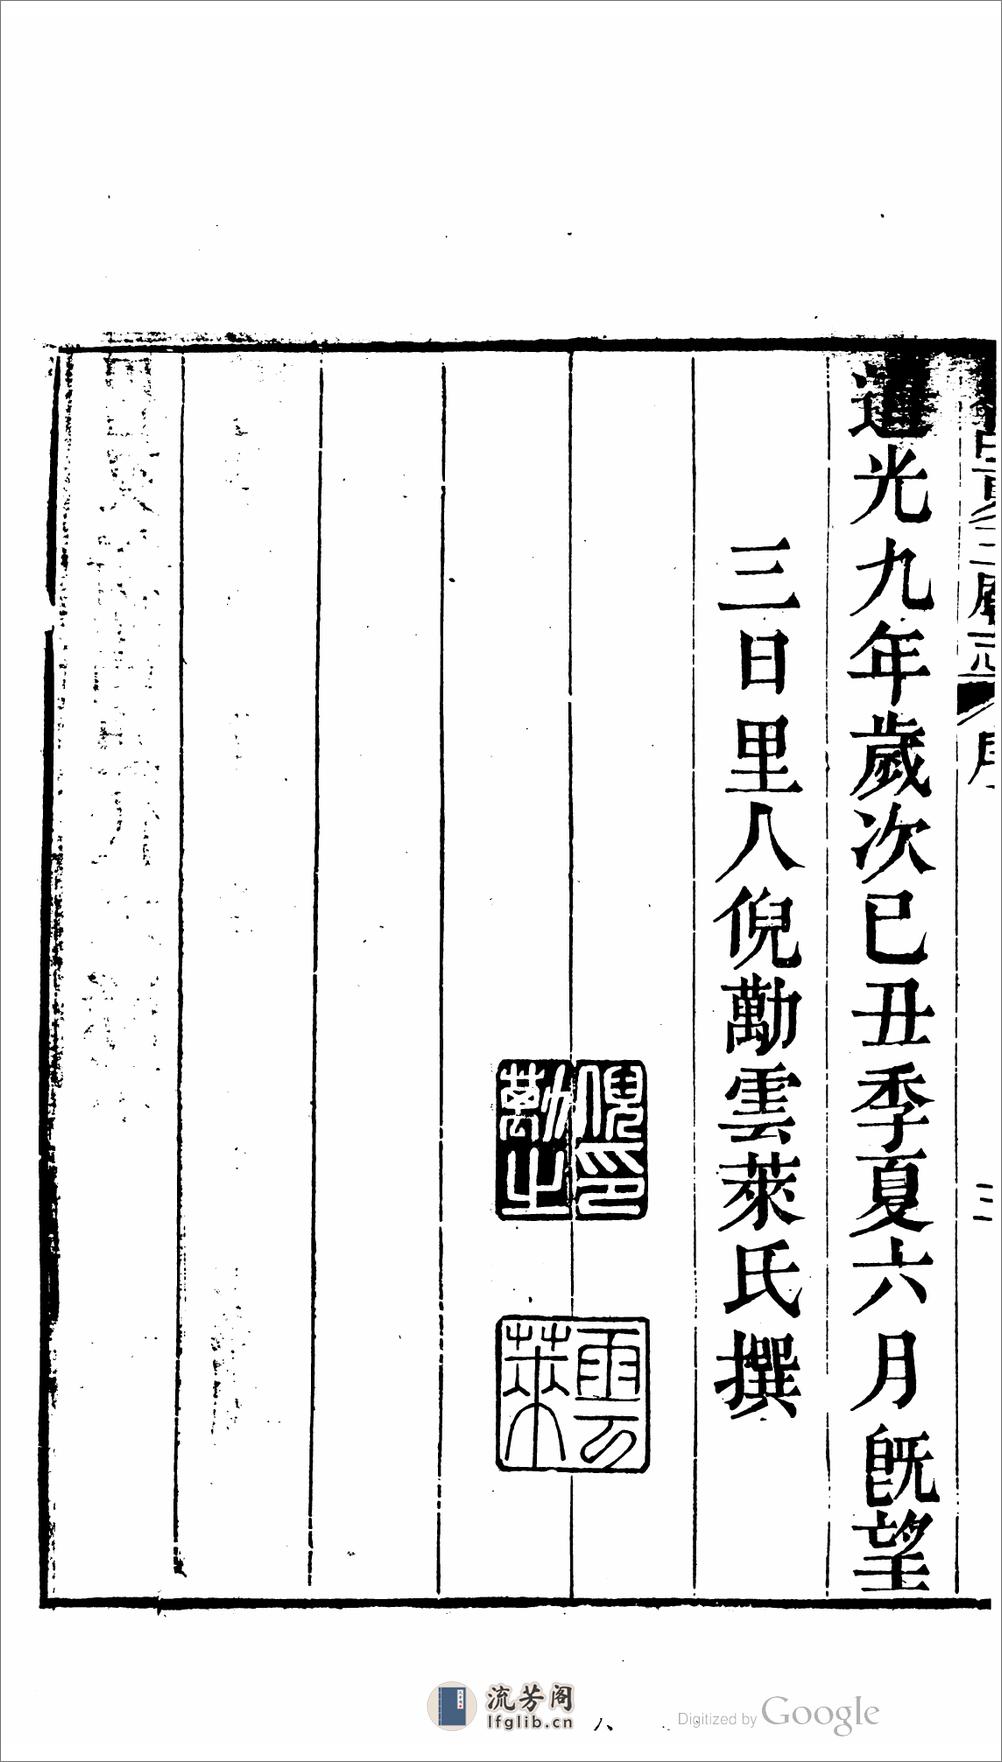 道光九年歲次已丑季夏六月旣望
三日里人倪勱雲萊氏撰
倪印
勱之
雲
萊
三
流芳阁
lfglib.cn
Digitized by Google